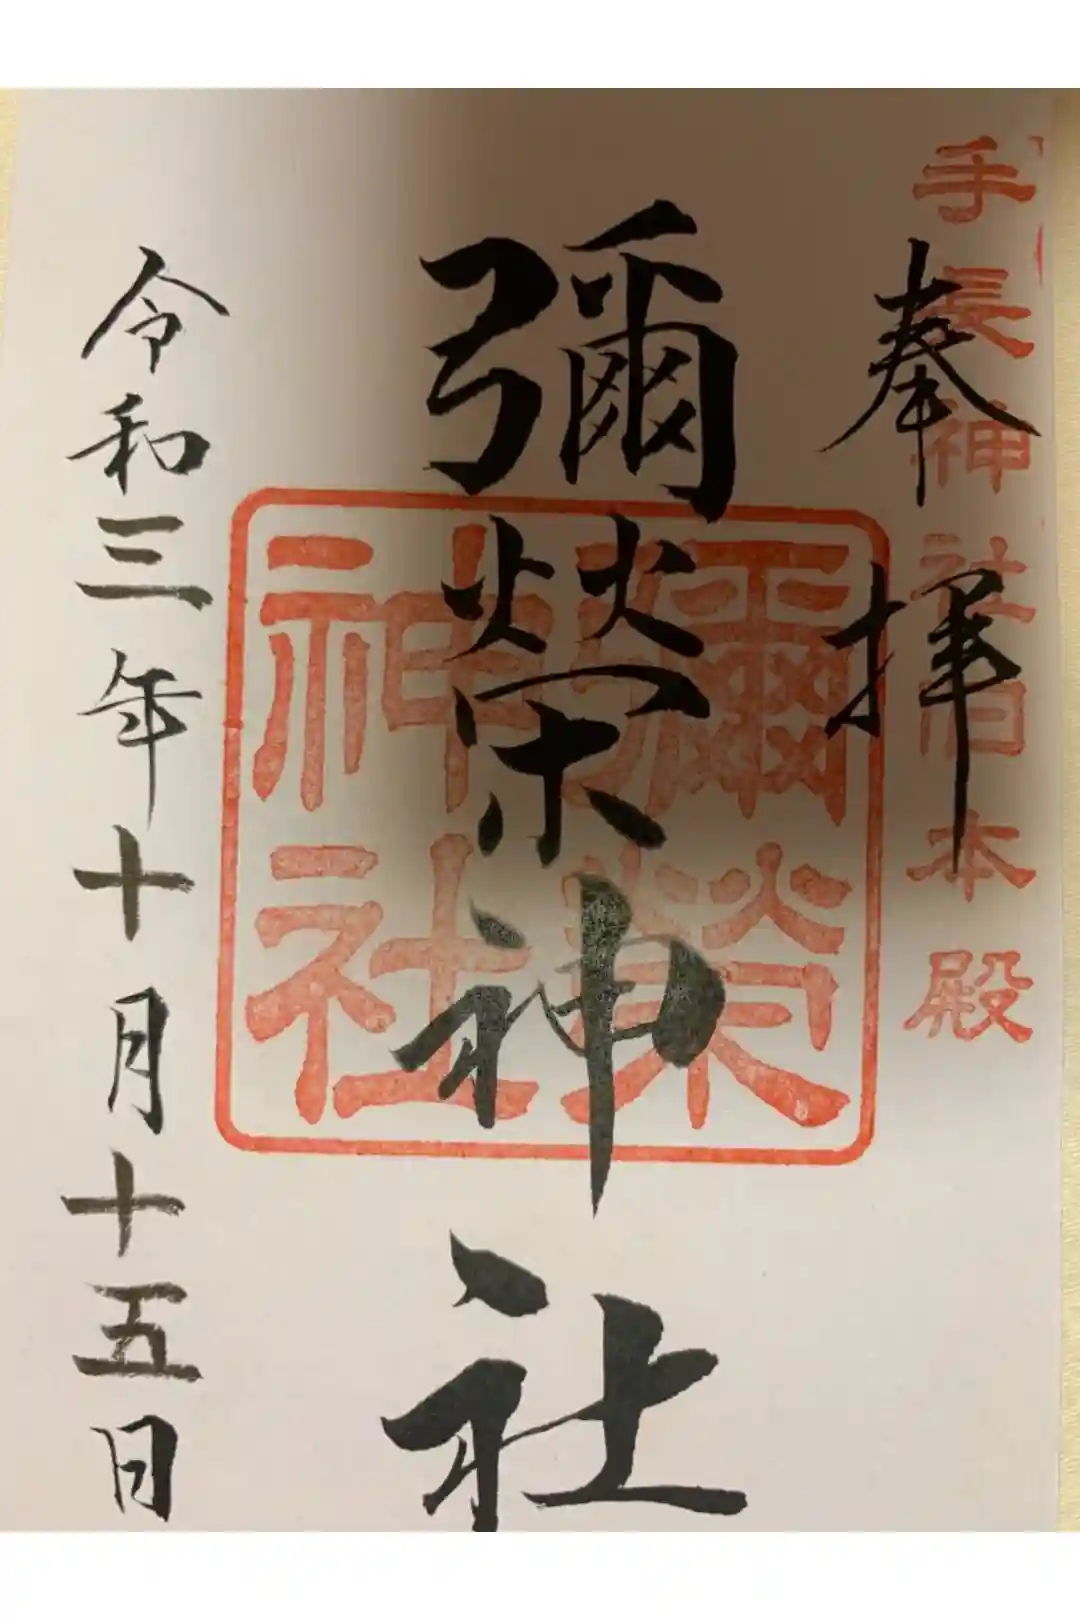 手長神社旧本殿
奉拝
彌榮神社
彌榮
神社
令和三年十月十五日